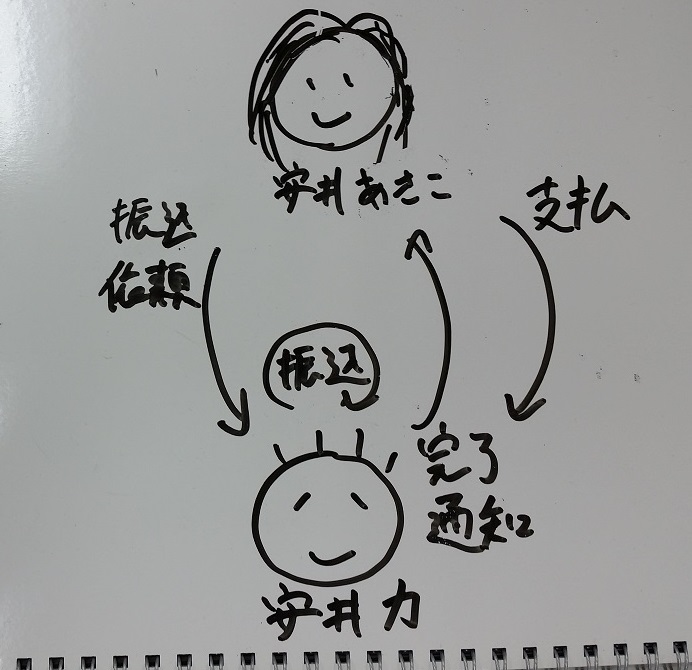 安井あさこ
振込
依頼
支払
振込
完了
通知
安井力